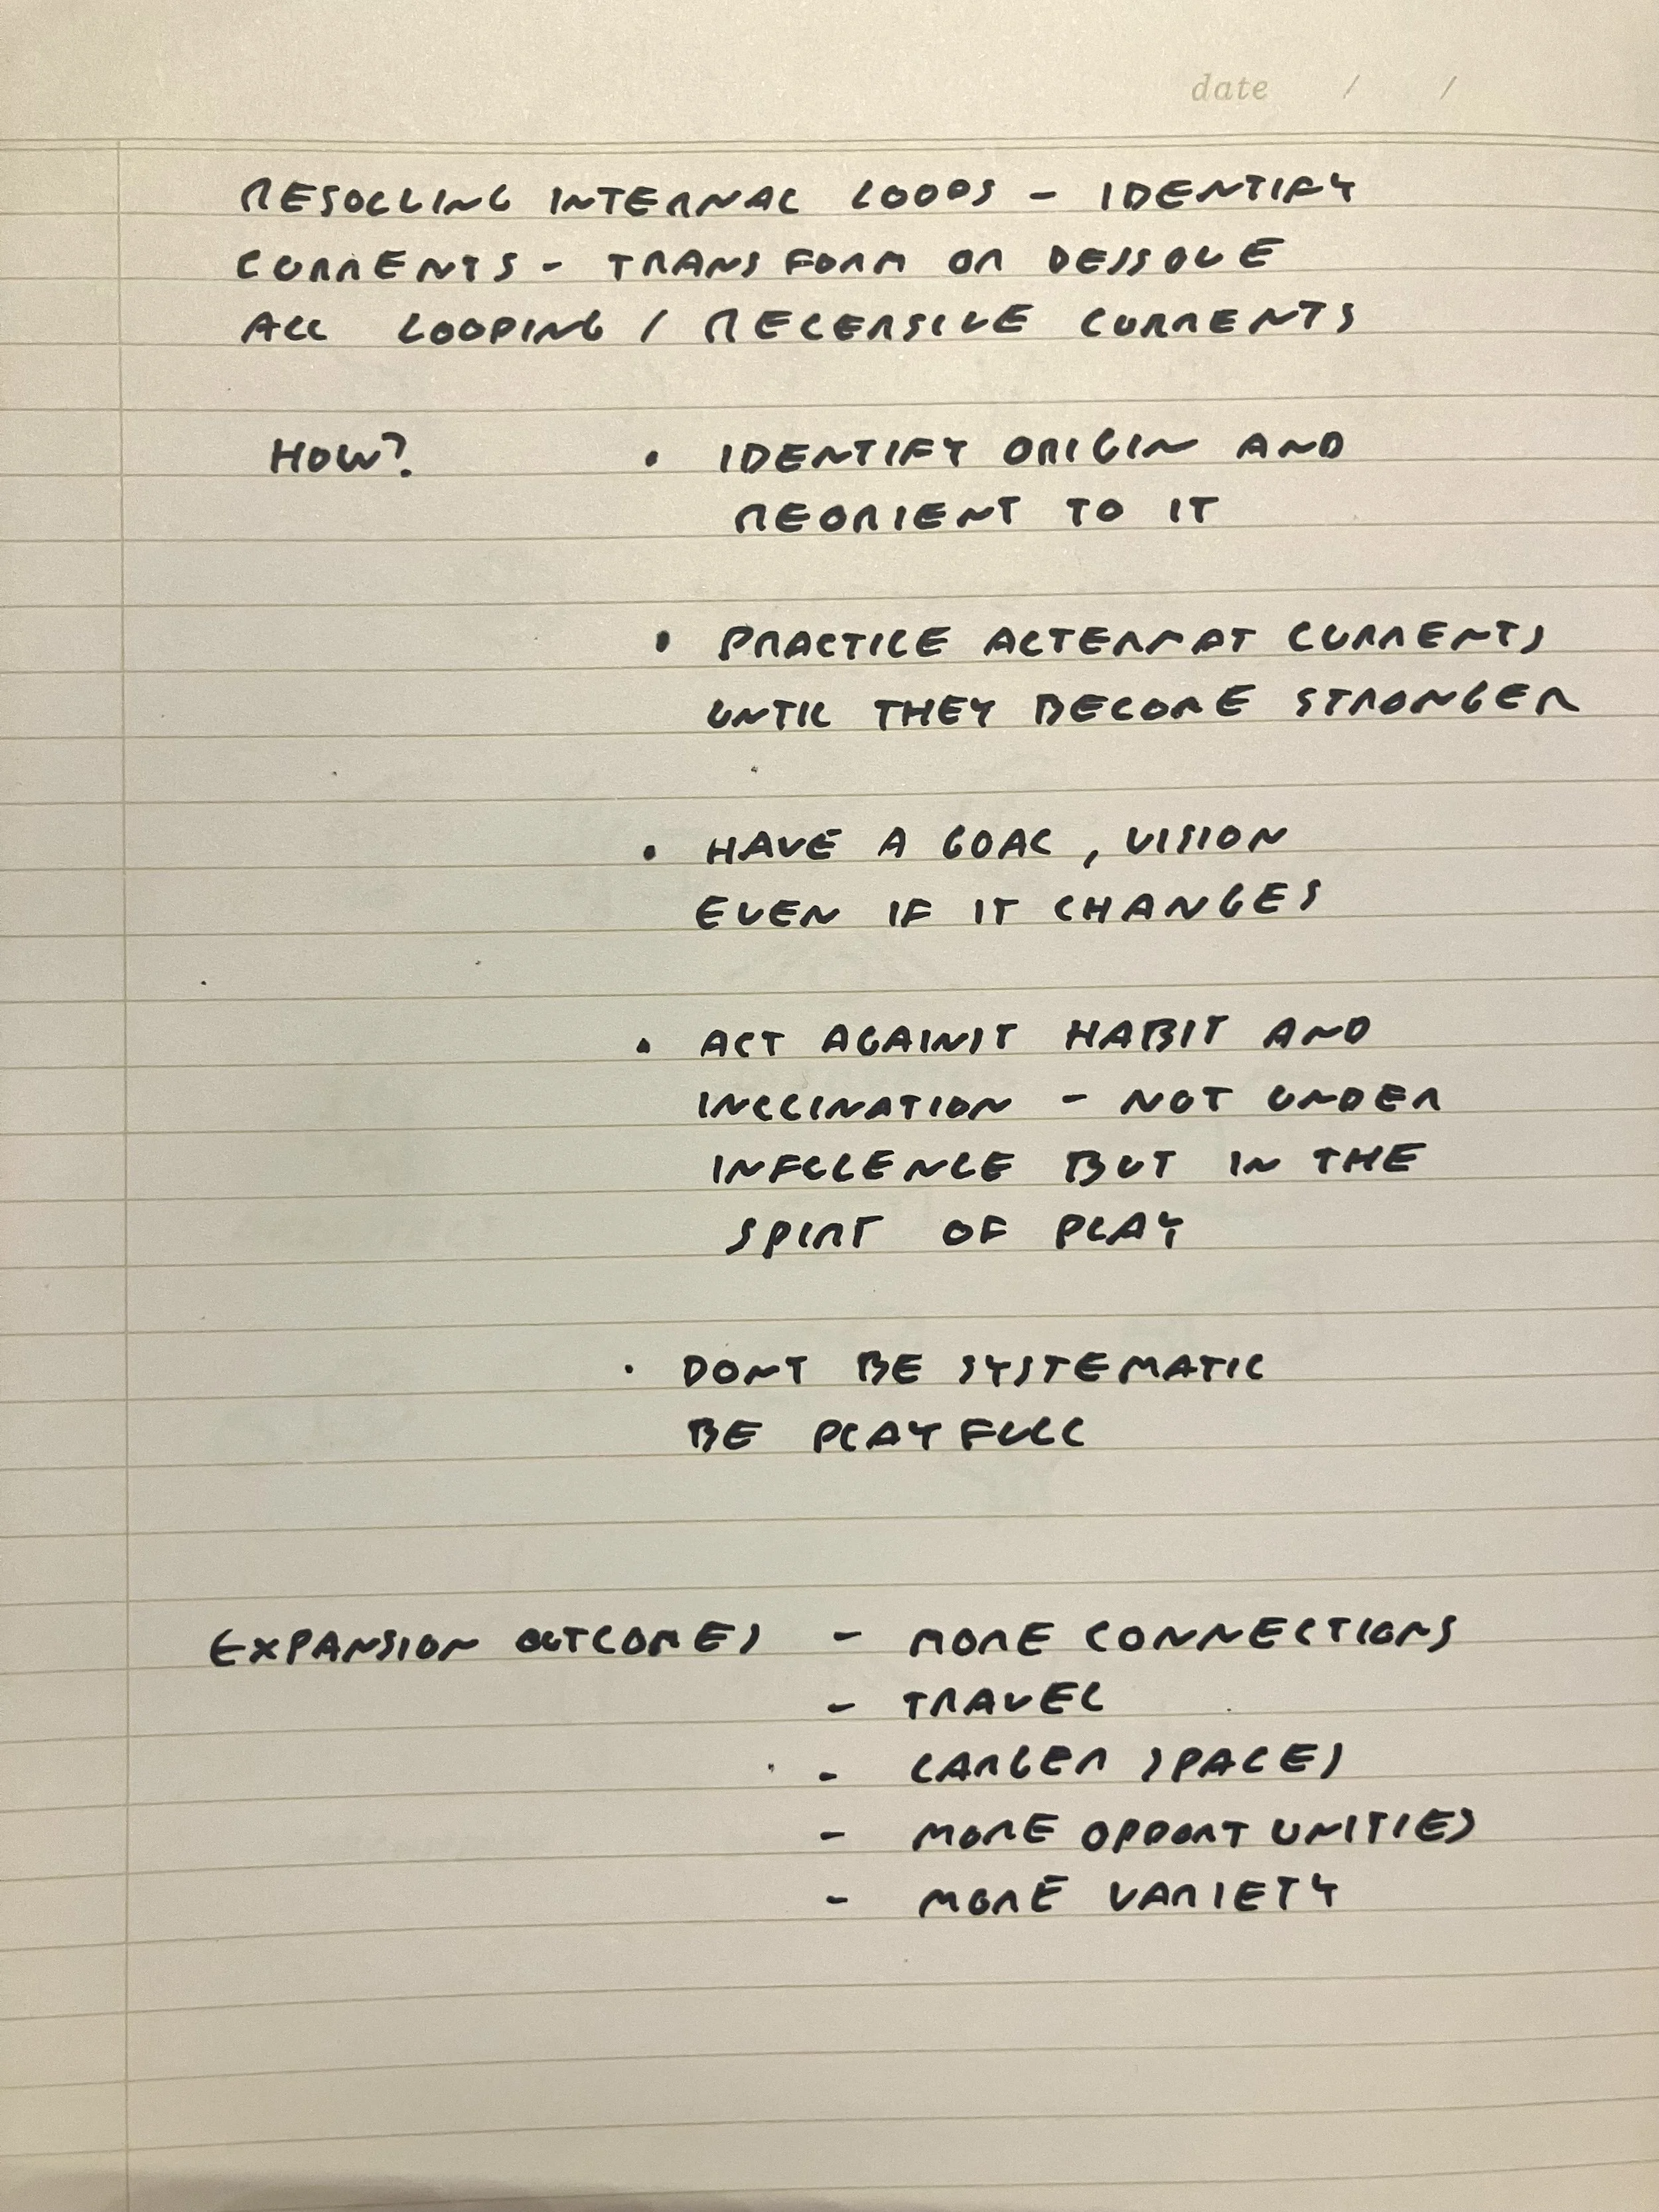 date / /
RESOLVING INTERNAL LOOPS - IDENTIFY
CURRENTS - TRANSFORM OR DESSOLVE
ALL LOOPING / RECERSIVE CURRENTS
HOW? • IDENTIFY ORIGIN AND
REORIENT TO IT
• PRACTICE ALTERNAT CURRENTS
UNTIL THEY BECOME STRONGER
• HAVE A GOAL, VISION
EVEN IF IT CHANGES
• ACT AGAINST HABIT AND
INCLINATION - NOT UNDER
INFLLENCE BUT IN THE
SPIRT OF PLAY
• DONT BE SYSTEMATIC
BE PLAYFULL
EXPANSION OUTCOMES - MORE CONNECTIONS
- TRAVEL
- LARGER SPACES
- MORE OPPORTUNITIES
- MORE VARIETY